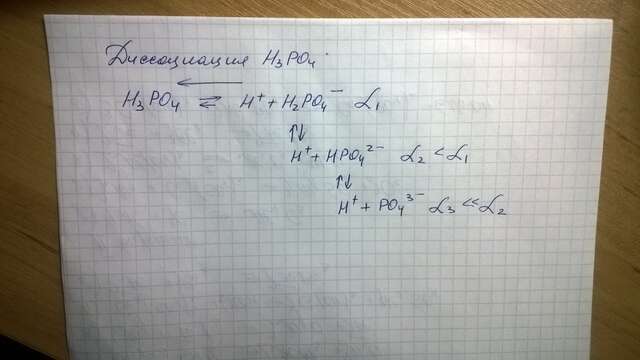 Диссоциация H₃PO₄.
←
H₃PO₄ ⇄ H⁺ + H₂PO₄⁻ α₁
⇅
H⁺ + HPO₄²⁻ α₂ < α₁
⇅
H⁺ + PO₄³⁻ α₃ ≪ α₂